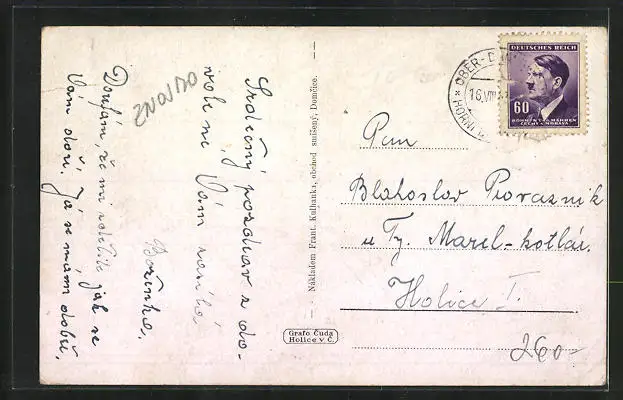 ZNOJMO
Srdečný pozdrav z do-
volené Vám zasílá
Boženka.
Doufám, že mi sdělíte jak se
Vám daří. Já se mám dobře.
— Nákladem Frant. Kulhanka, obchod smíšený, Domčice.
Grafo Čuda
Holice v Č.
DEUTSCHES REICH
60
BÖHMEN U. MÄHREN
ČECHY A MORAVA
OBER-
16.VIII
HORNÍ
Pan
Blahoslav Provazník
u Fy.
Holice I.
260-